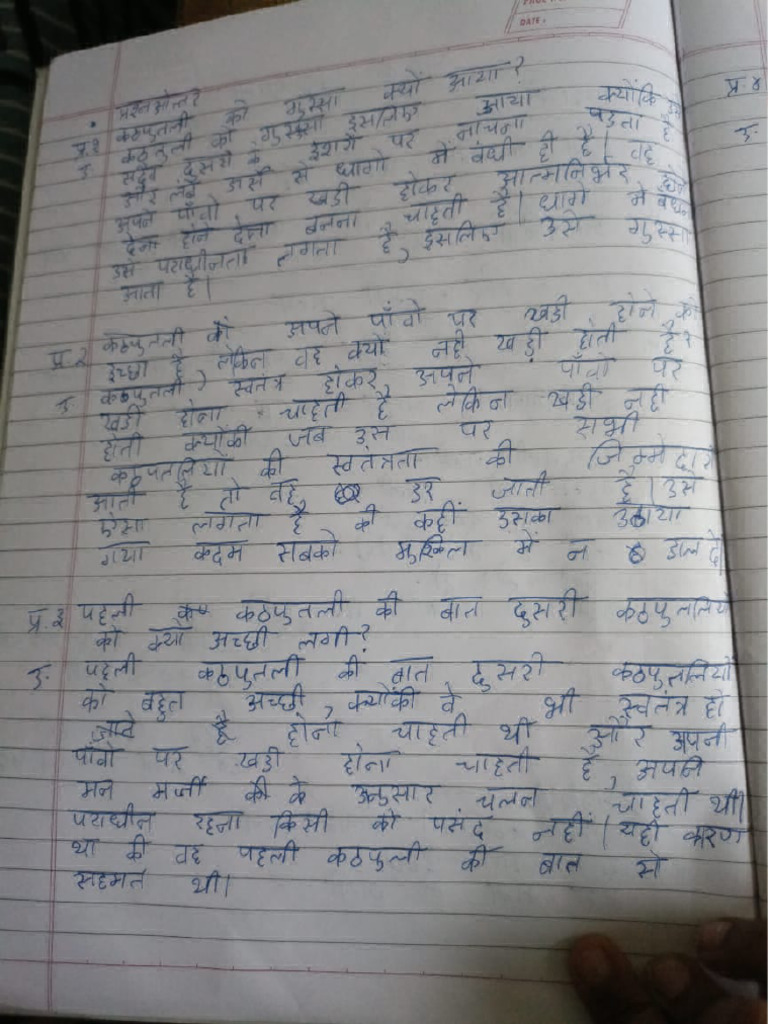 DATE:
प्रश्नओत्तर
प्र.१ कठपुतली को गुस्सा क्यों आया?
उ. कठपुतली को गुस्सा इसलिए आया क्योंकि उसे
सदैव दुसरो के इशारो पर नाचना पड़ता है
और लंबे अर्से से धागो में बंधी ही है। वह
अपने पाँवो पर खडी होकर आत्मनिर्भर होना
देना होने देना बनना चाहती है। धागे में बंधना
उसे पराधीनता लगता है, इसलिए उसे गुस्सा
आता है।
प्र.२ कठपुतली को अपने पाँवो पर खडी होने की
इच्छा है लेकिन वह क्यों नही खड़ी होती है?
उ. कठपुतली स्वतंत्र होकर अपने पाँवो पर
खडी होना चाहती है लेकिन खडी नही
होती क्योंकी जब उस पर सभी
कठपुतलियो की स्वतंत्रता की जिम्मेदारी
आती है तो वह डर जाती है। उसे
ऐसा लगता है की कहीं उसका उठाया
गया कदम सबको मुश्किल में न डाल दे।
प्र.३ पहली कठपुतली की बात दुसरी कठपुतलियो
को क्यों अच्छी लगी?
उ. पहली कठपुतली की बात दुसरी कठपुतलियो
को बहुत अच्छी, क्योंकी वे भी स्वतंत्र हो
जाते है होना चाहती थी और अपनी
पाँवो पर खडी होना चाहती है, अपने
मन मर्जी की के अनुसार चलन चाहती थी।
पराधीन रहना किसी को पसंद नहीं। यही कारण
था की वह पहली कठपुली की बात से
सहमत थी।
प्र.४
उ.